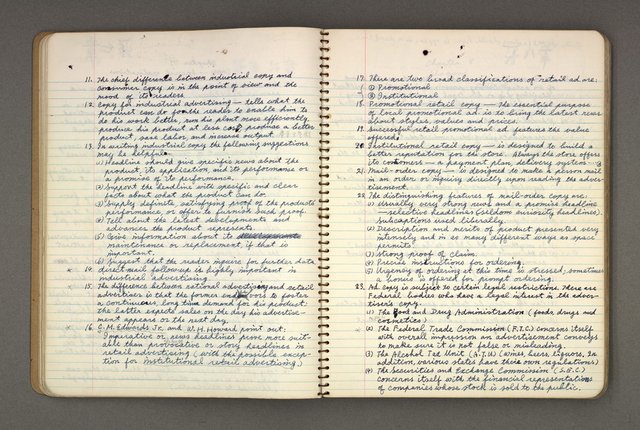 11. The chief difference between industrial copy and
consumer copy is in the point of view and the
mood of its readers
12. Copy for industrial advertising — tells what the
product can do for the reader to enable him to
do his work better, run his plant more efficiently
produce his product at less cost produce a better
product, save labor, and increase output
13. In writing industrial copy the following suggestions
may be helpful
(1) Headline should give specific news about the
product, its application, and its performance or
a promise of its performance.
(2) Support the headline with specific and clear
facts about what the product can do.
(3) Supply definite, satisfying proof of the products
performance, or offer to furnish such proof.
(4) Tell about the latest developments and
advances the product represents
(5) Give information about its developments
maintenance or replacement if that is
important.
(6) Suggest that the reader inquire for further data
x 14. direct mail follow-up is highly important in
industrial advertising.
15. The difference between national advertising and retail
advertiser is that the former endeavors to foster
a continuous, long time demand for his product
the latter expects sales on the day his advertise-
ment appears or the next day.
x 16. C. M. Edwards Jr. and W. H. Howard point out:
Imperative or news headlines prove more suit-
able than provocative or story headlines in
retail advertising (with the possible excep-
tion for institutional retail advertising.)
17. There are two broad classifications of retail ad. are:
(1) Promotional
(2) Institutional
18. Promotional retail copy — The essential purpose
of local promotional ad. is to bring the latest news
about styles, values and prices.
19. Successful retail promotional ad features the value
offered.
20. Institutional retail copy — is designed to build a
better reputation for the store. Always the store offers
its customers — a payment plan, delivery system
21. Mail-order copy — is designed to make a person mail
in an order or inquiry directly upon reading the adver-
tisement.
22. The distinguishing features of mail-order copy are:
(1) Usually very strong news and a promise headline
— selective headlines (seldom curiosity headlines).
Subcaptions used liberally.
(2) Description and merits of product presented very
intensely and in as many different ways as space
permits
(3) Strong proof of claim.
(4) Precise instructions for ordering.
(5) Urgency of ordering at this time is stressed, sometimes
a bonus is offered for prompt ordering.
23. Ad copy is subject to certain legal restrictions. There are
Federal bodies who have a legal interest in the adver-
tiser's copy.
(1) The Food and Drug Administration (foods, drugs and
cosmetics)
(2) The Federal Trade Commission (F.T.C.) concerns itself
with overall impression an advertisement conveys
to make sure it is not false or misleading.
(3) The Alcohol Tax Unit (A.T.U.) (wines, beers, liquors, In
addition, various states have their own regulations)
(4) The Securities and Exchange Commission (S.E.C.)
concerns itself with the financial representations
of companies whose stock is sold to the public.